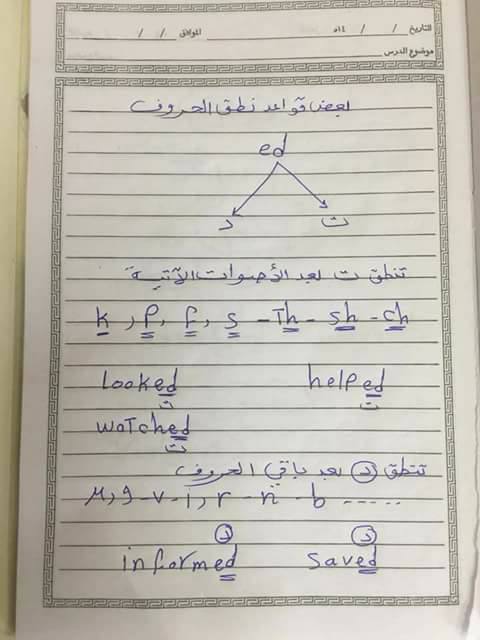 التاريخ / / ١٤هـ الموافق / /
موضوع الدرس
بعض قواعد نطق الحروف
ed
د ت
تنطق ت بعد الأصوات الآتية
k , p , f , s - Th - sh - ch
looked helped
ت ت
watched
ت
تنطق د بعد باقي الحروف
g - v - i , r - n - b -----
د د
informed saved